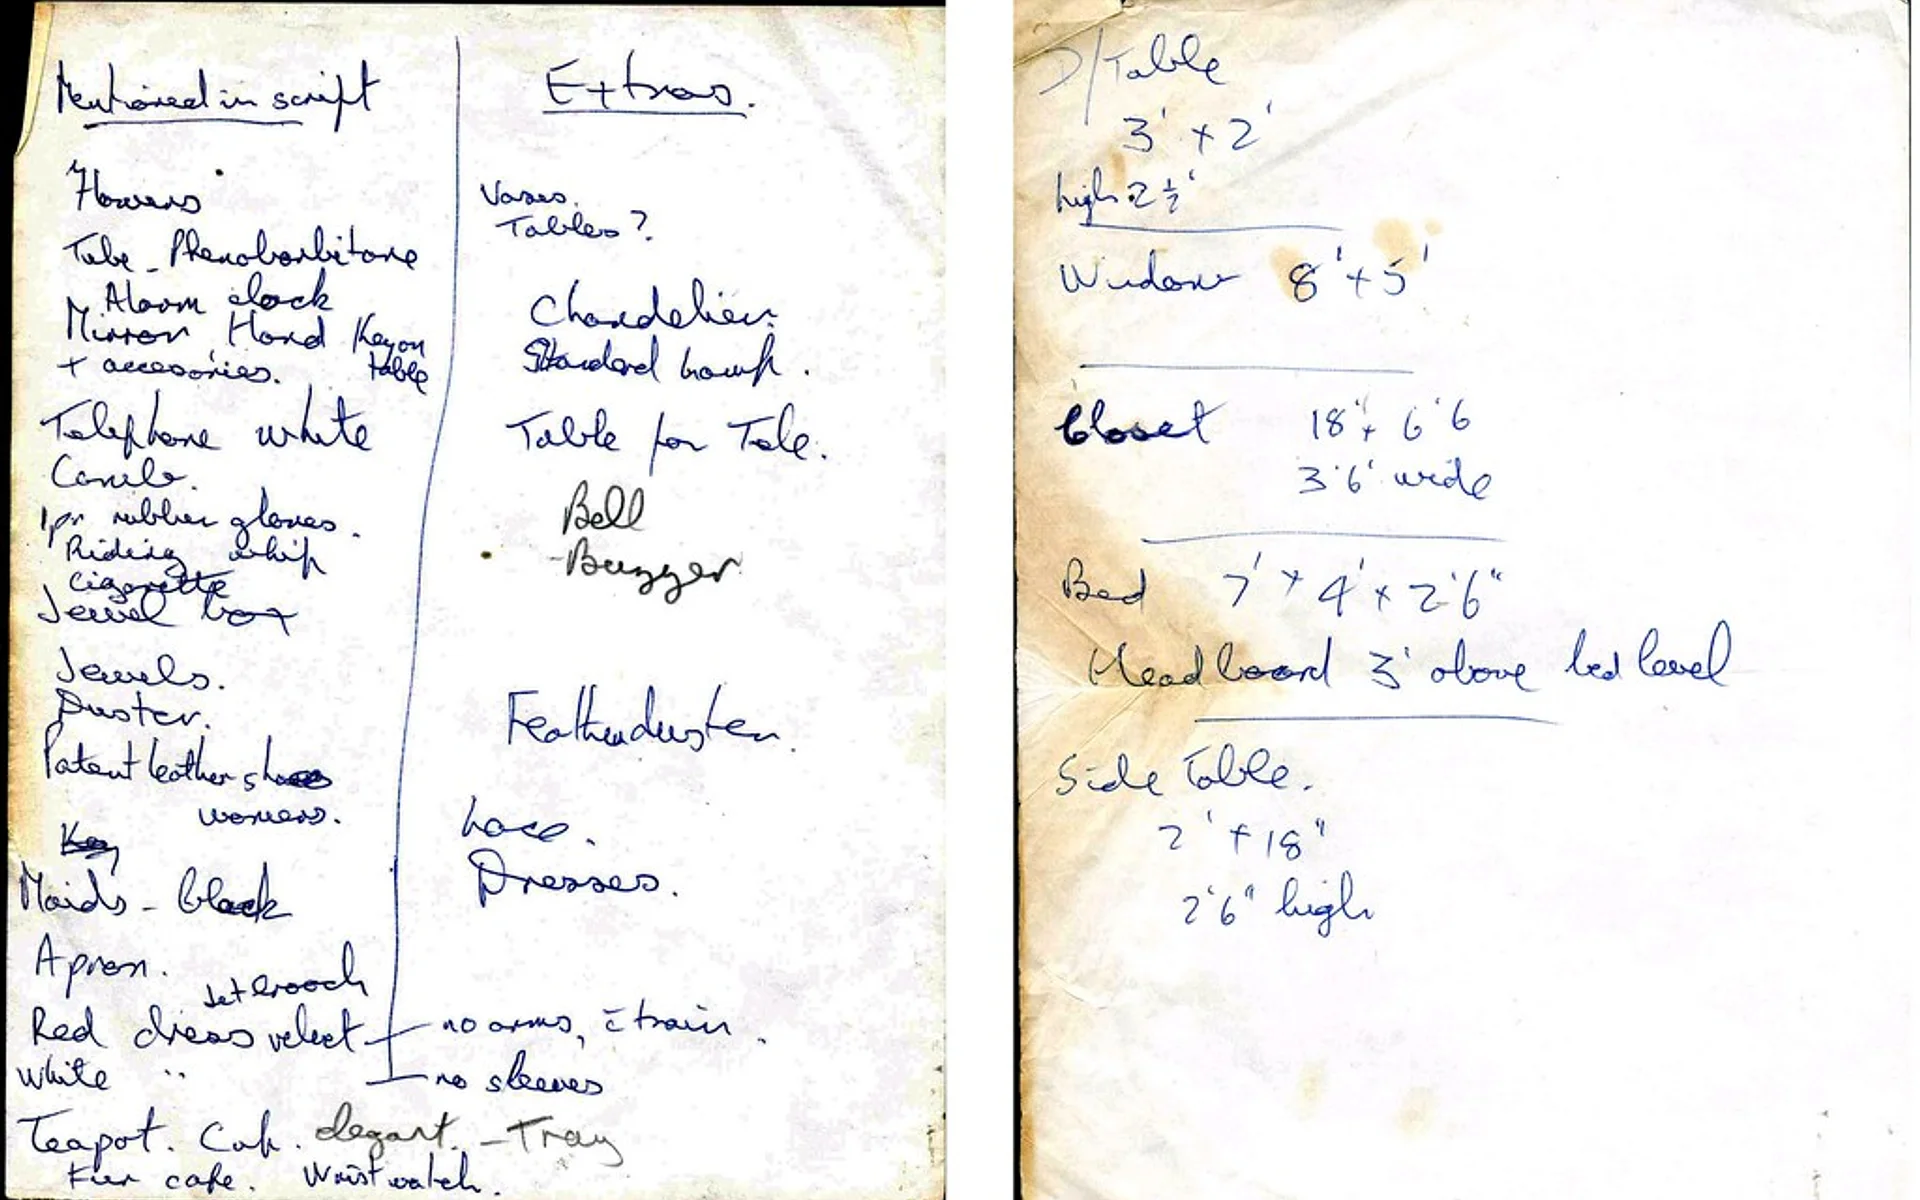 Mentioned in script
Flowers
Tube - Phenobarbitone
Alarm clock
Mirror Hand Key on
+ accessories. table
Telephone white
Comb.
1 pr rubber gloves.
Riding whip
Cigarette
Jewel box
Jewels.
Duster.
Patent leather shoes
womens.
Key
Maids - black
Apron.
Jet brooch
Red dress velvet
White "
Teapot. Cup. elegant. - Tray
Fur cape. Wrist watch.
Extras.
Vases.
Tables?
Chandelier.
Standard lamp.
Table for Tele.
Bell
- Buzzer
Featherduster.
Lace.
Dresses.
no arms, c̄ train.
no sleeves
D/Table
3' x 2'
high 2 ½'
Window 8' x 5'
Closet 18' x 6'6
3'6' wide
Bed 7' x 4' x 2'6"
Head board 3' above bed level
Side Table.
2' x 18"
2'6" high